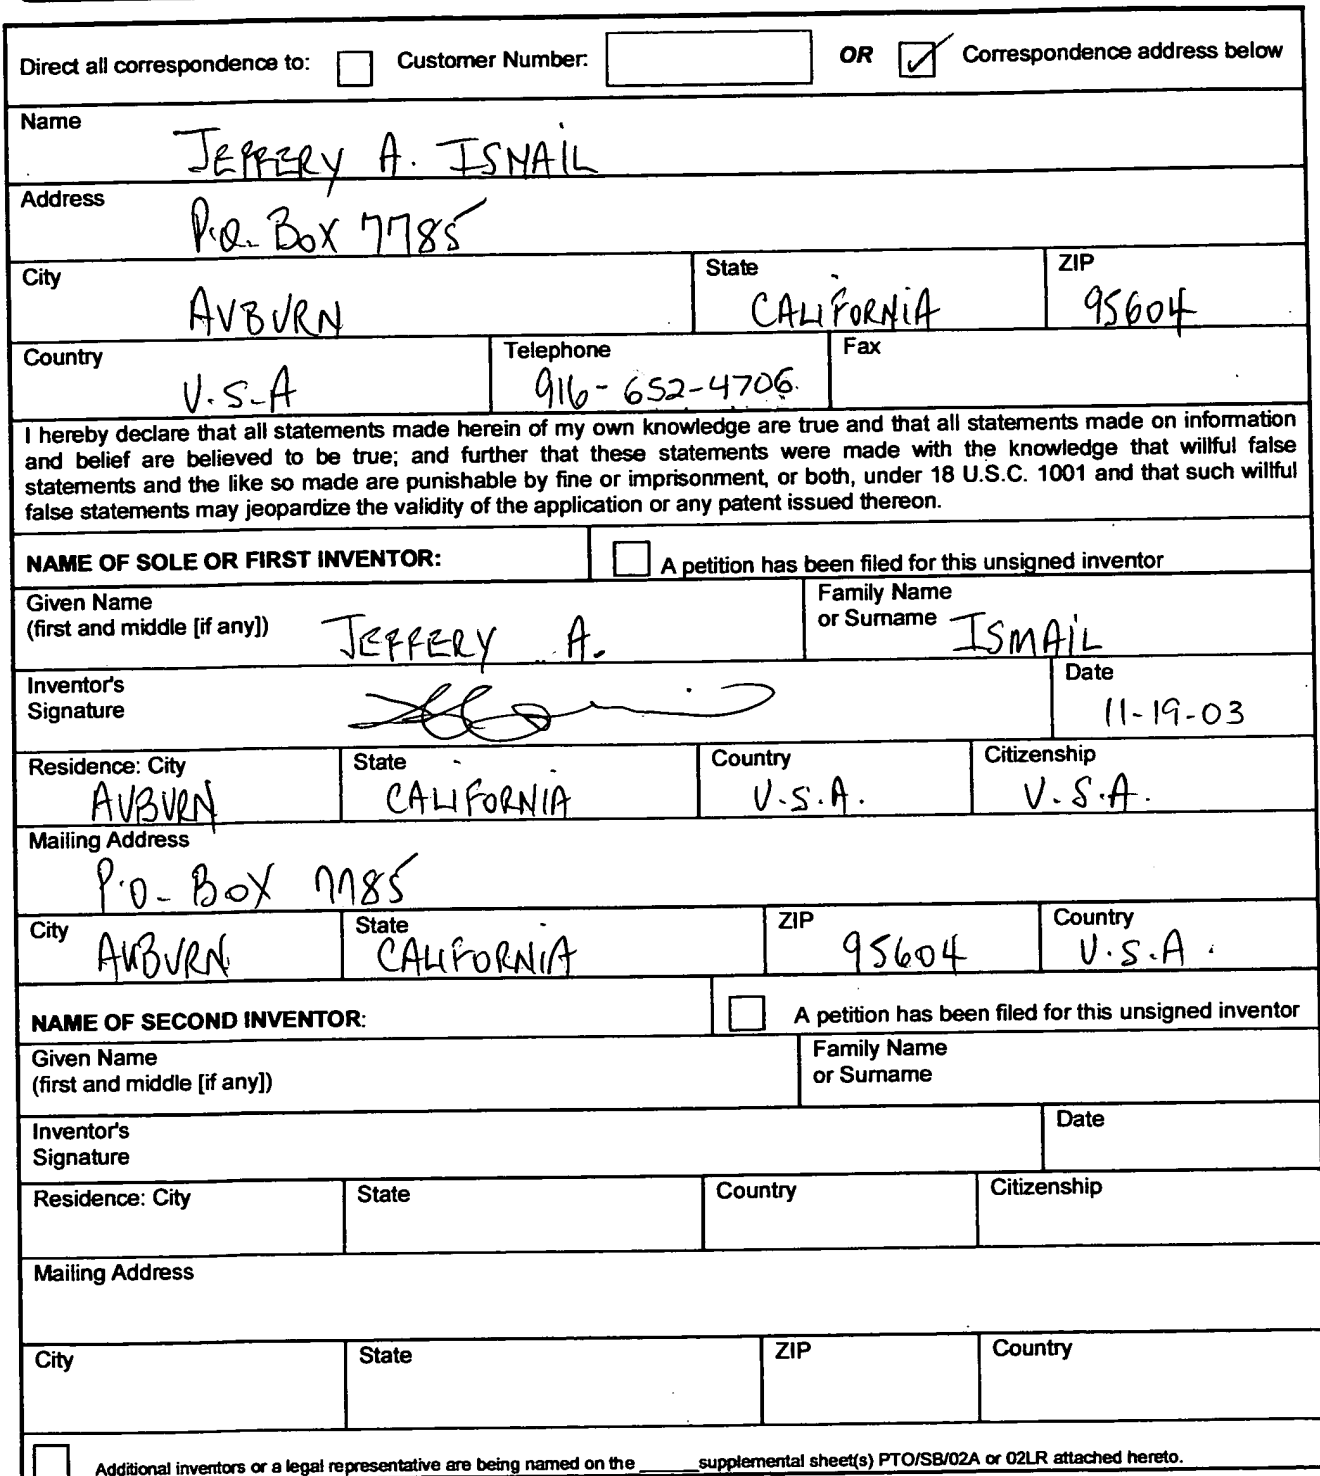 Direct all correspondence to: Customer Number: OR Correspondence address below
Name
JEFFERY A. ISMAIL
Address
P.O. BOX 7785
City State ZIP
AUBURN CALIFORNIA 95604
Country Telephone Fax
U.S.A 916-652-4706
I hereby declare that all statements made herein of my own knowledge are true and that all statements made on information
and belief are believed to be true; and further that these statements were made with the knowledge that willful false
statements and the like so made are punishable by fine or imprisonment, or both, under 18 U.S.C. 1001 and that such willful
false statements may jeopardize the validity of the application or any patent issued thereon.
NAME OF SOLE OR FIRST INVENTOR: A petition has been filed for this unsigned inventor
Given Name Family Name
(first and middle [if any]) JEFFERY A. or Surname ISMAIL
Inventor's Date
Signature 11-19-03
Residence: City State Country Citizenship
AUBURN CALIFORNIA U.S.A. U.S.A.
Mailing Address
P.O. BOX 7785
City State ZIP Country
AUBURN CALIFORNIA 95604 U.S.A.
NAME OF SECOND INVENTOR: A petition has been filed for this unsigned inventor
Given Name Family Name
(first and middle [if any]) or Surname
Inventor's Date
Signature
Residence: City State Country Citizenship
Mailing Address
City State ZIP Country
Additional inventors or a legal representative are being named on the ______supplemental sheet(s) PTO/SB/02A or 02LR attached hereto.